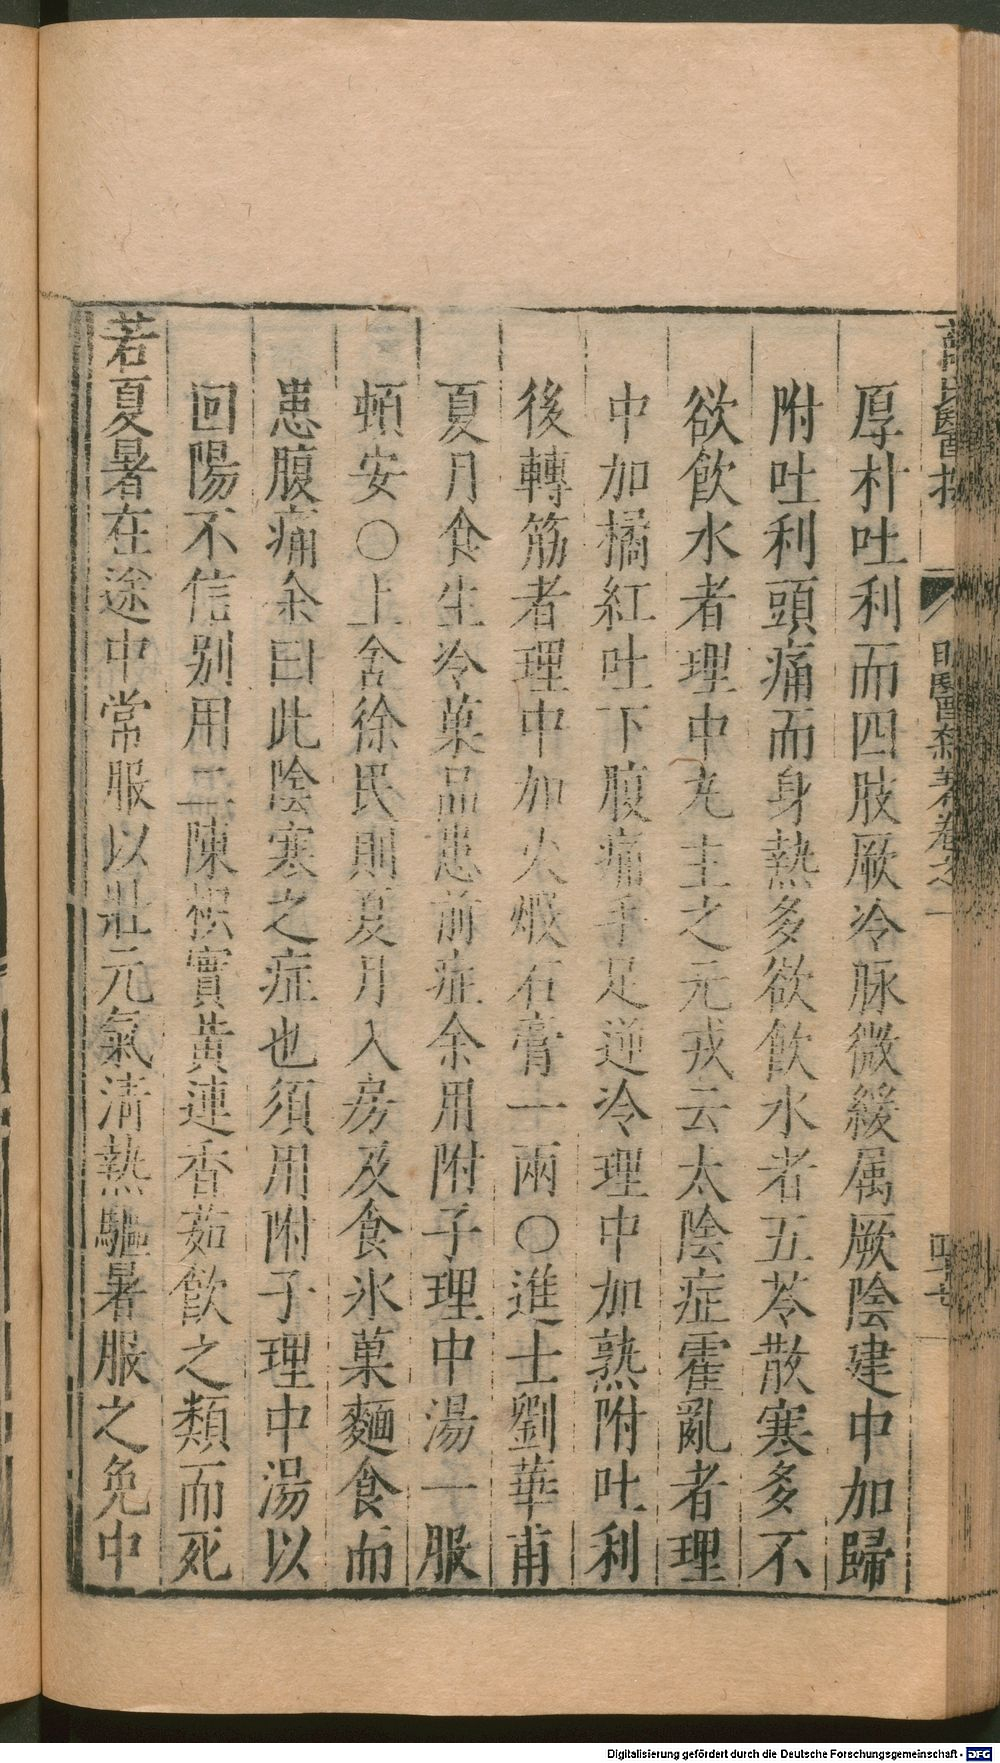 薛氏醫按
明醫雜著卷之一
厚朴吐利而四肢厥冷脉微緩属厥陰建中加歸
附吐利頭痛而身熱多欲飲水者五苓散寒多不
欲飲水者理中丸主之元戎云太陰症霍亂者理
中加橘紅吐下腹痛手足逆冷理中加熟附吐利
後轉筋者理中加火煅石膏一兩○進士劉華甫
夏月食生冷菓品患前症余用附子理中湯一服
頓安○上舍徐民則夏月入房及食氷菓麵食而
患腹痛余曰此陰寒之症也須用附子理中湯以
回陽不信别用二陳枳實黄連香茹飲之類而死
若夏暑在途中常服以壯元氣清熱驅暑服之免中
Digitalisierung gefördert durch die Deutsche Forschungsgemeinschaft - DFG